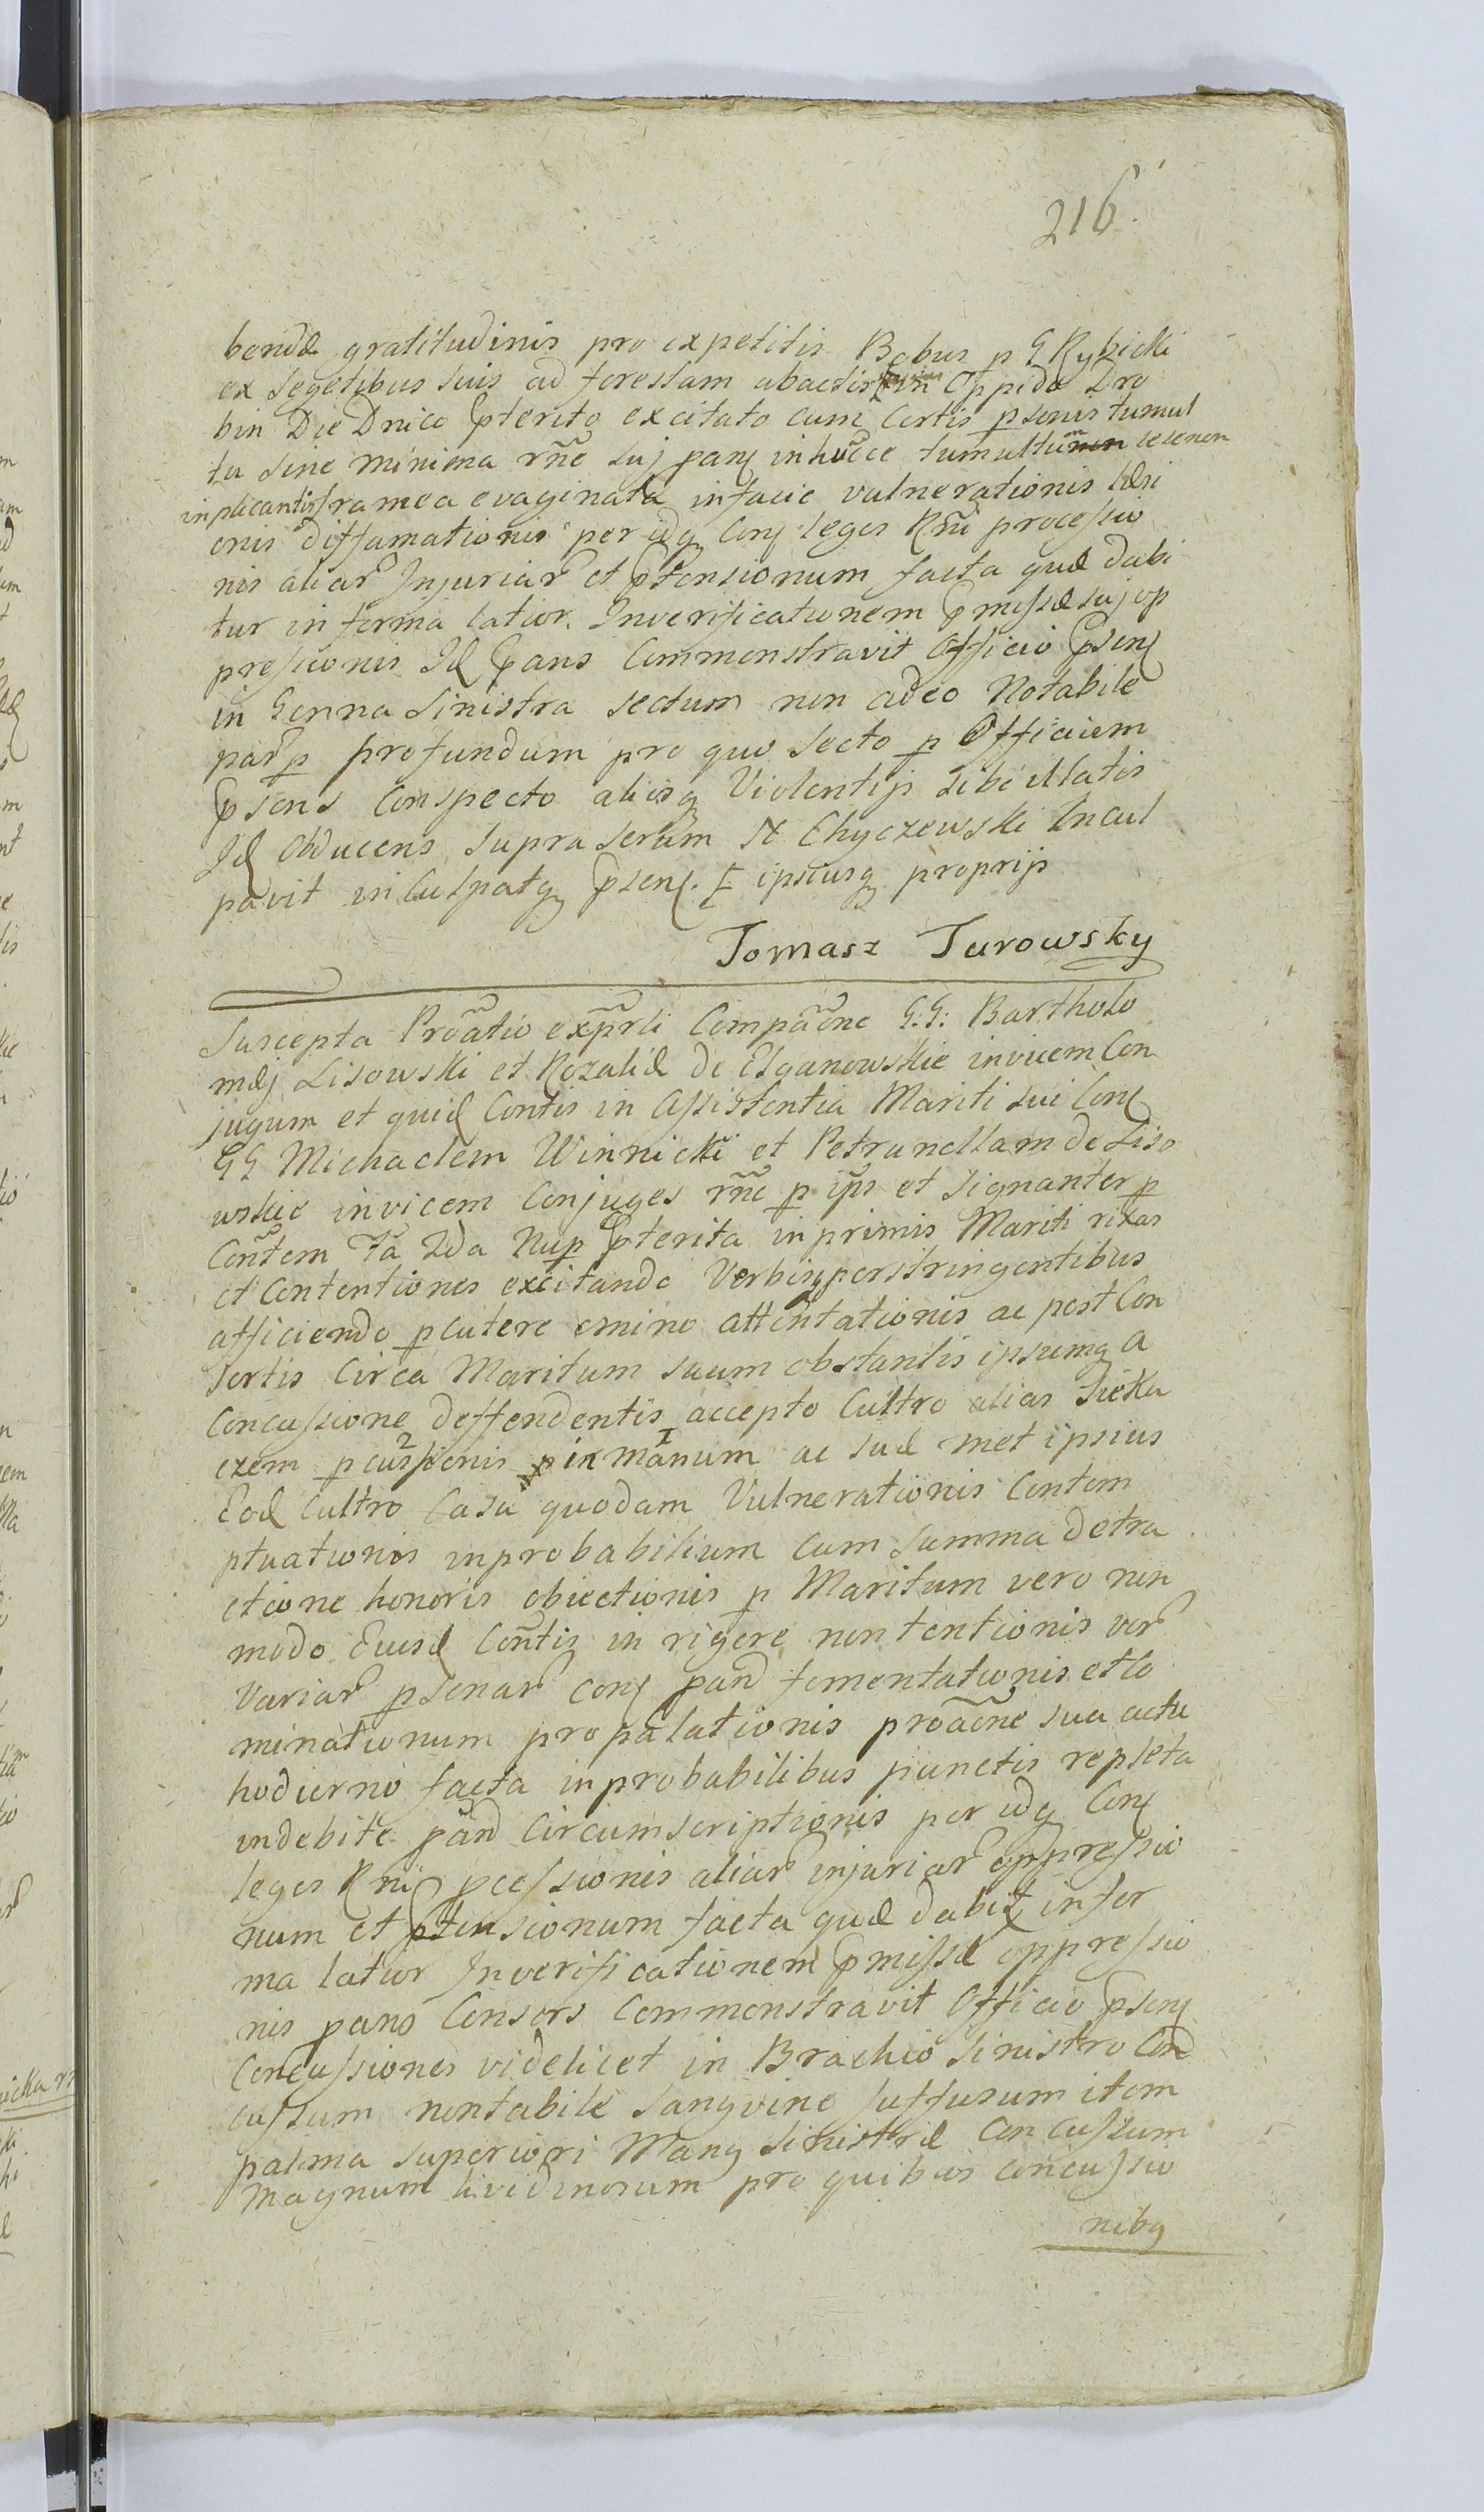 216
bendæ gratitudinis pro expetitis Bobus p G Rybicki
ex segetibus suis ad forestam abactis in Oppido Dro
bin Die Dnico pterito excitato cum Certis psonis tumul
tu sine minima rñe suj panѯ in huc̃ce tumultum sese non
inplicantis framea evaginata in facie vulnerationis læsi
onis diffamationis per idq Conѯ leges Rñi processio
nis aliar Injuriar et ptensionum facta quæ dabi
tur in forma latior. Inverificationem pmissæ suj op
pressionis Id pans Commonstravit Officio psenѯ
in Genna Sinistra sectum non adeo Notabile
par p profundum pro quo secto p Officium
psens Conspecto alijsq Violentijs sibi illatis
Id Obducens supra Serum N Chyczewski Incul
pavit inCulpatq psenѯ. ipsiusq proprijs
Tomasz Turowsky
Suscepta Prõatio exprli Compãone G:G: Bartholo
mæj Lisowski et Rozaliæ de Elganowskie invicem Con
jugum et quid Contis in Assistentia Mariti sui Conѯ
GG Michaelem Winnicki et Petrunellam de Liso
wskie invicem Conjuges rñe p ips et signanter p
Coñtem Fa 2da Nup pterita inprimis Mariti rixas
et Contentiones excitando Verbisq perstringentibus
afficiendo pcutere omino attentationis ac post Con
sortis Circa Maritum suum obstantis ipsumq a
Concussione deffendentis accepto Cultro alias Sieka
czem pcussionis in manum ac suæ met ipsius
Eod Cultro Casu quodam Vulnerationis Contem
ptuationis inprobabilium cum summa detra
ctione honoris obiectionis p Maritum vero non
modo Eiusd Coñtis in rigore non tentionis ver
Variar psonar conѯ pand fomentationis et Co
minationum propalationis proãone sua actu
hodierno facta inprobabilibus punctis repleta
indebite pand Circumscriptionis per idq Conѯ
leges Rñi pcessionis aliar injuriar oppressio
num et ptensionum facta quæ dabit infor
ma latior Inverificationem pmissæ oppressio
nis pans Consors Commonstravit Officio psenѯ
Concussiones videlicet in Brachio Sinistro Con
cussum nontabile sangvine suffusum item
palma superiori Manq sinistræ Concussum
magnum lividinosum pro quibus concussio
nibq